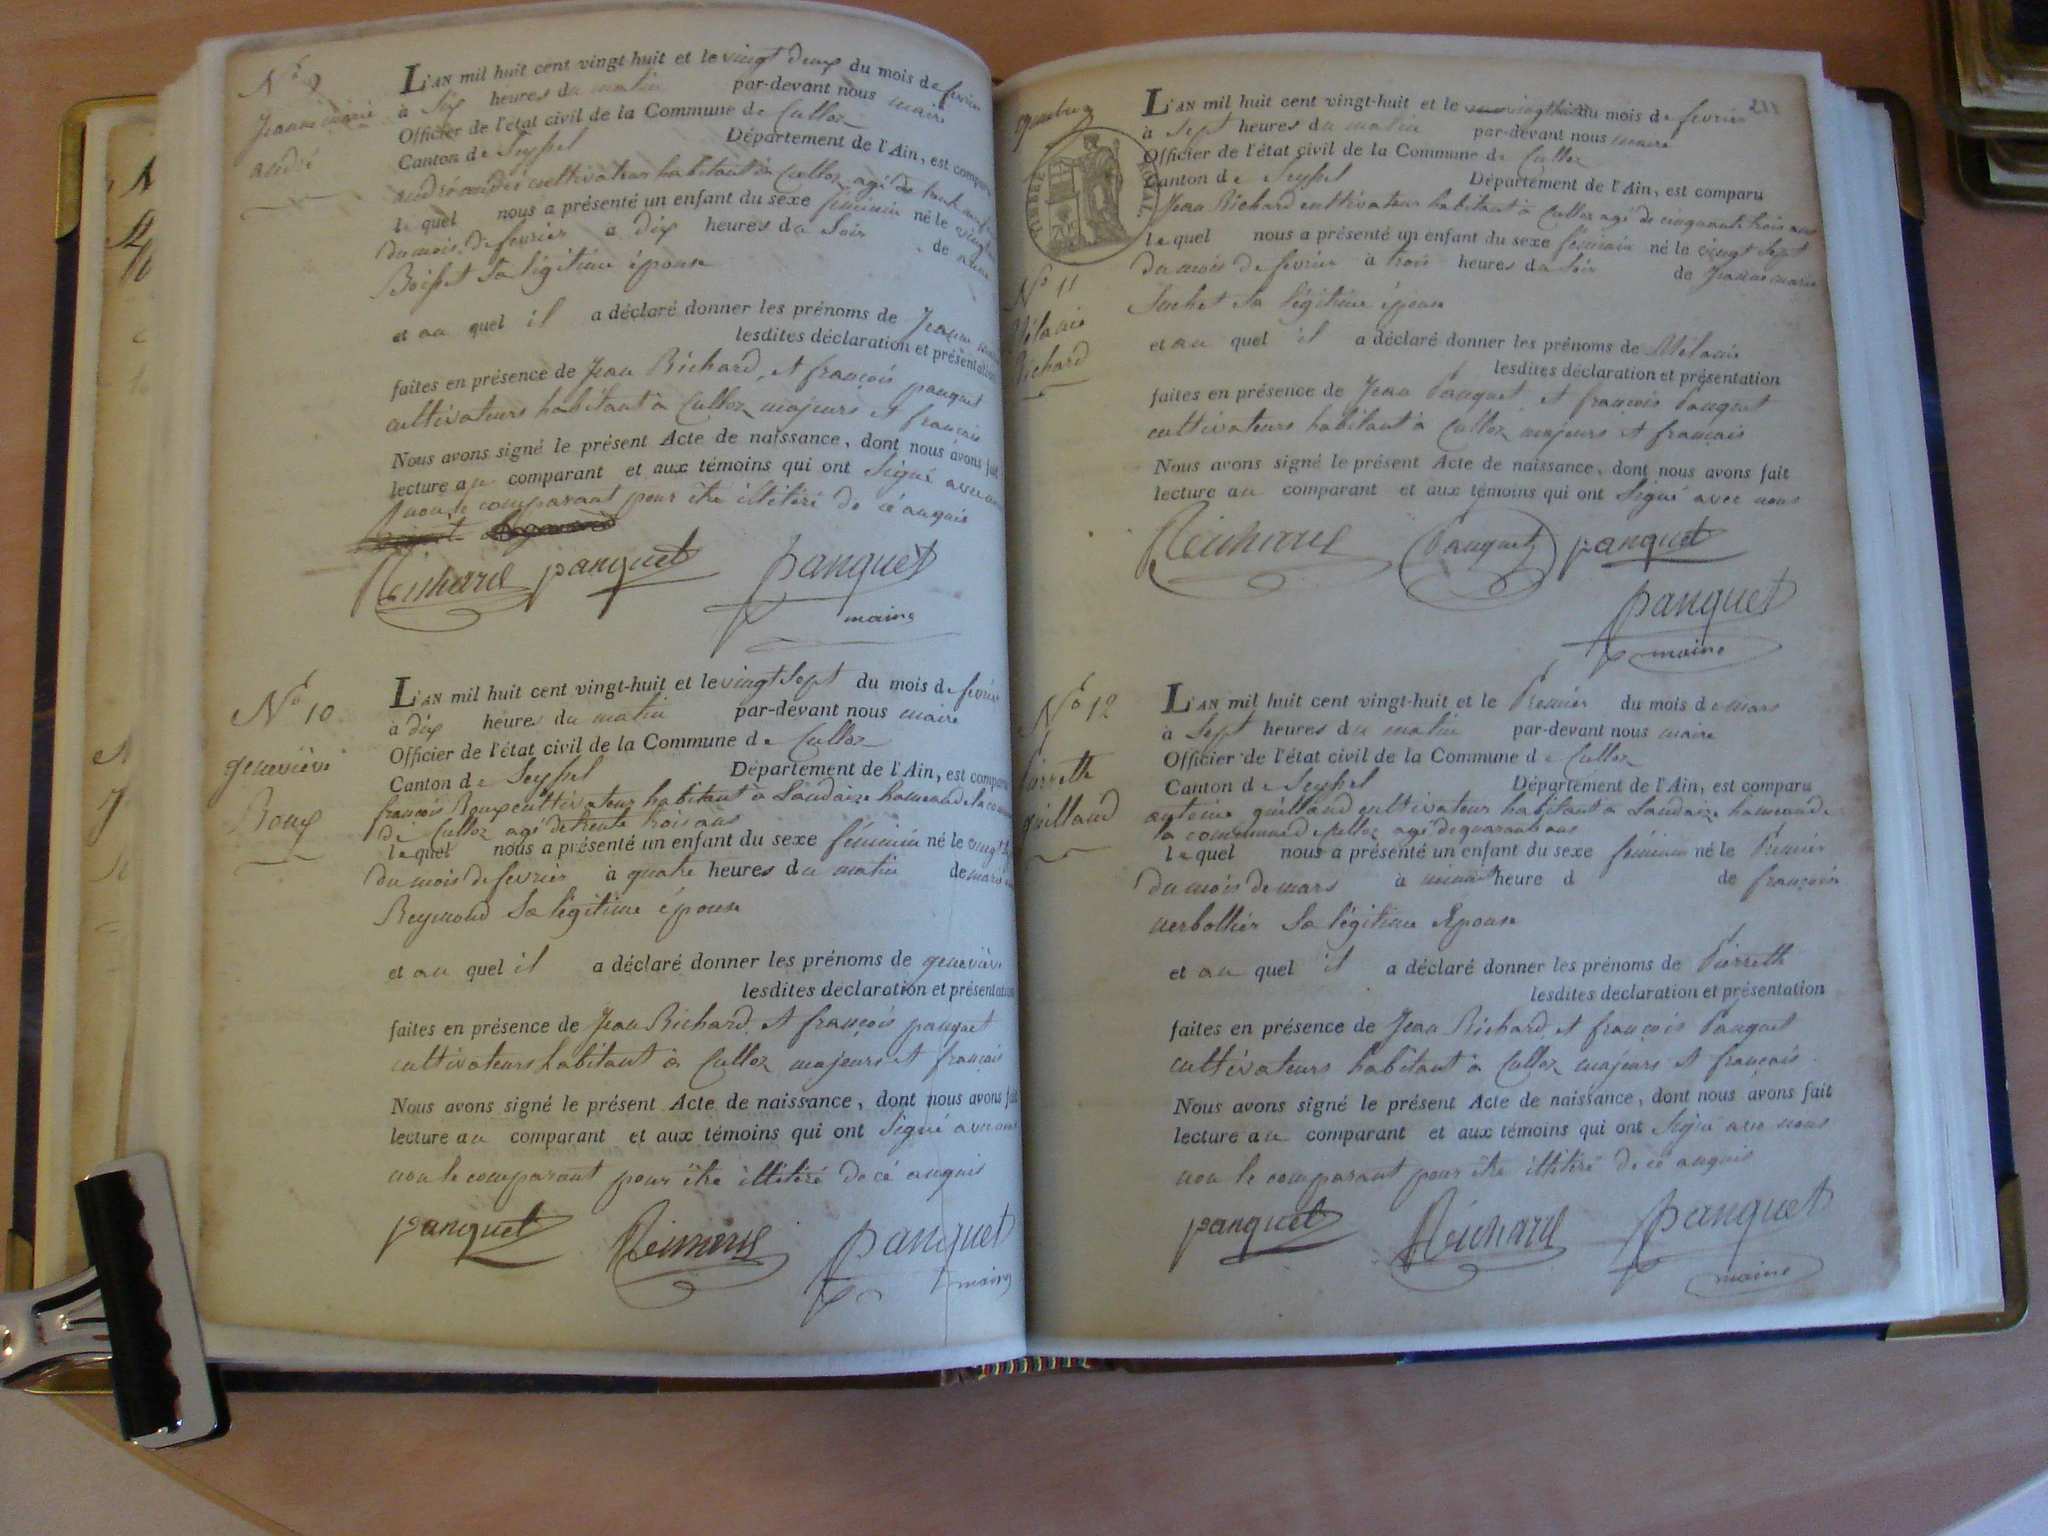 N.º 9
Jeanne marie
andré
L'AN mil huit cent vingt-huit et le vingt deux du mois de fevrier
à Six heures du matin par-devant nous maire
Officier de l'état civil de la Commune de Culloz
Canton de Seyssel Département de l'Ain, est comparu
andré cultivateur habitant à Culloz agé de
le quel nous a présenté un enfant du sexe féminin né le vingt
du mois de fevrier à dix heures du Soir de
Boisset Sa légitime épouse
et au quel il a déclaré donner les prénoms de Jeanne marie
lesdites déclaration et présentation
faites en présence de Jean Richard, et françois panquet
cultivateurs habitant à Culloz majeurs et français
Nous avons signé le présent Acte de naissance, dont nous avons fait
lecture au comparant et aux témoins qui ont Signé avec nous
non le comparant pour être illitéré de cé anquis
Richard panquet panquet
maire
N.º 10
geneviève
Roux
L'AN mil huit cent vingt-huit et le vingt Sept du mois de fevrier
à dix heures du matin par-devant nous maire
Officier de l'état civil de la Commune de Culloz
Canton de Seyssel Département de l'Ain, est comparu
françois Roux cultivateur habitant à Landaize hameau de la commune
de Culloz agé de trente trois ans
le quel nous a présenté un enfant du sexe féminin né le vingt
du mois de fevrier à quatre heures du matin de marie
Reymond Sa légitime épouse
et au quel il a déclaré donner les prénoms de geneviève
lesdites declaration et présentation
faites en présence de Jean Richard, et françois panquet
cultivateurs habitant à Culloz majeurs et français
Nous avons signé le présent Acte de naissance, dont nous avons fait
lecture au comparant et aux témoins qui ont Signé avec nous
non le comparant pour être illitéré de cé anquis
panquet Richard panquet
maire
211
TIMBRE ROYAL
N.º 11
Mélanie
Richard
L'AN mil huit cent vingt-huit et le vingt huit du mois de fevrier
à Sept heures du matin par-devant nous maire
Officier de l'état civil de la Commune de Culloz
Canton de Seyssel Département de l'Ain, est comparu
Jean Richard cultivateur habitant à Culloz agé de cinquante trois ans
le quel nous a présenté un enfant du sexe féminin né le vingt Sept
du mois de fevrier à trois heures du Soir de Jeanne marie
Suchet Sa légitime épouse
et au quel il a déclaré donner les prénoms de Mélanie
lesdites déclaration et présentation
faites en présence de Jean Panquet, et françois Panquet
cultivateurs habitant à Culloz majeurs et français
Nous avons signé le présent Acte de naissance, dont nous avons fait
lecture au comparant et aux témoins qui ont Signé avec nous
Richard Panquet panquet
panquet
maire
N.º 12
Pierrette
guilland
L'AN mil huit cent vingt-huit et le Premier du mois de mars
à Sept heures du matin par-devant nous maire
Officier de l'état civil de la Commune de Culloz
Canton de Seyssel Département de l'Ain, est comparu
antoine guilland cultivateur habitant à Landaize hameau de
la commune de Culloz agé de quarante ans
le quel nous a présenté un enfant du sexe féminin né le Premier
du mois de mars à minuit heure d de françoise
verbollier Sa légitime Epouse
et au quel il a déclaré donner les prénoms de Pierrette
lesdites declaration et présentation
faites en présence de Jean Richard, et françois Panquet
cultivateurs habitant à Culloz majeurs et français.
Nous avons signé le présent Acte de naissance, dont nous avons fait
lecture au comparant et aux témoins qui ont Signé avec nous
non le comparant pour être illitéré de cé anquis
panquet Richard panquet
maire